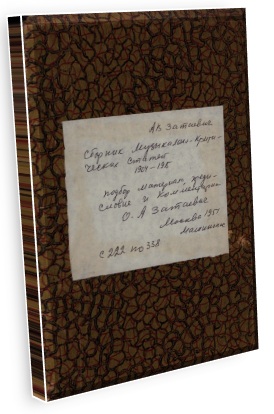 А.В. Затаевич
Сборник Музыкально-Крити-
ческих Статей
1904-1915
подбор материала, преди-
словия и комментарии
О. А Затаевич
Москва 1951
с 222 по 358